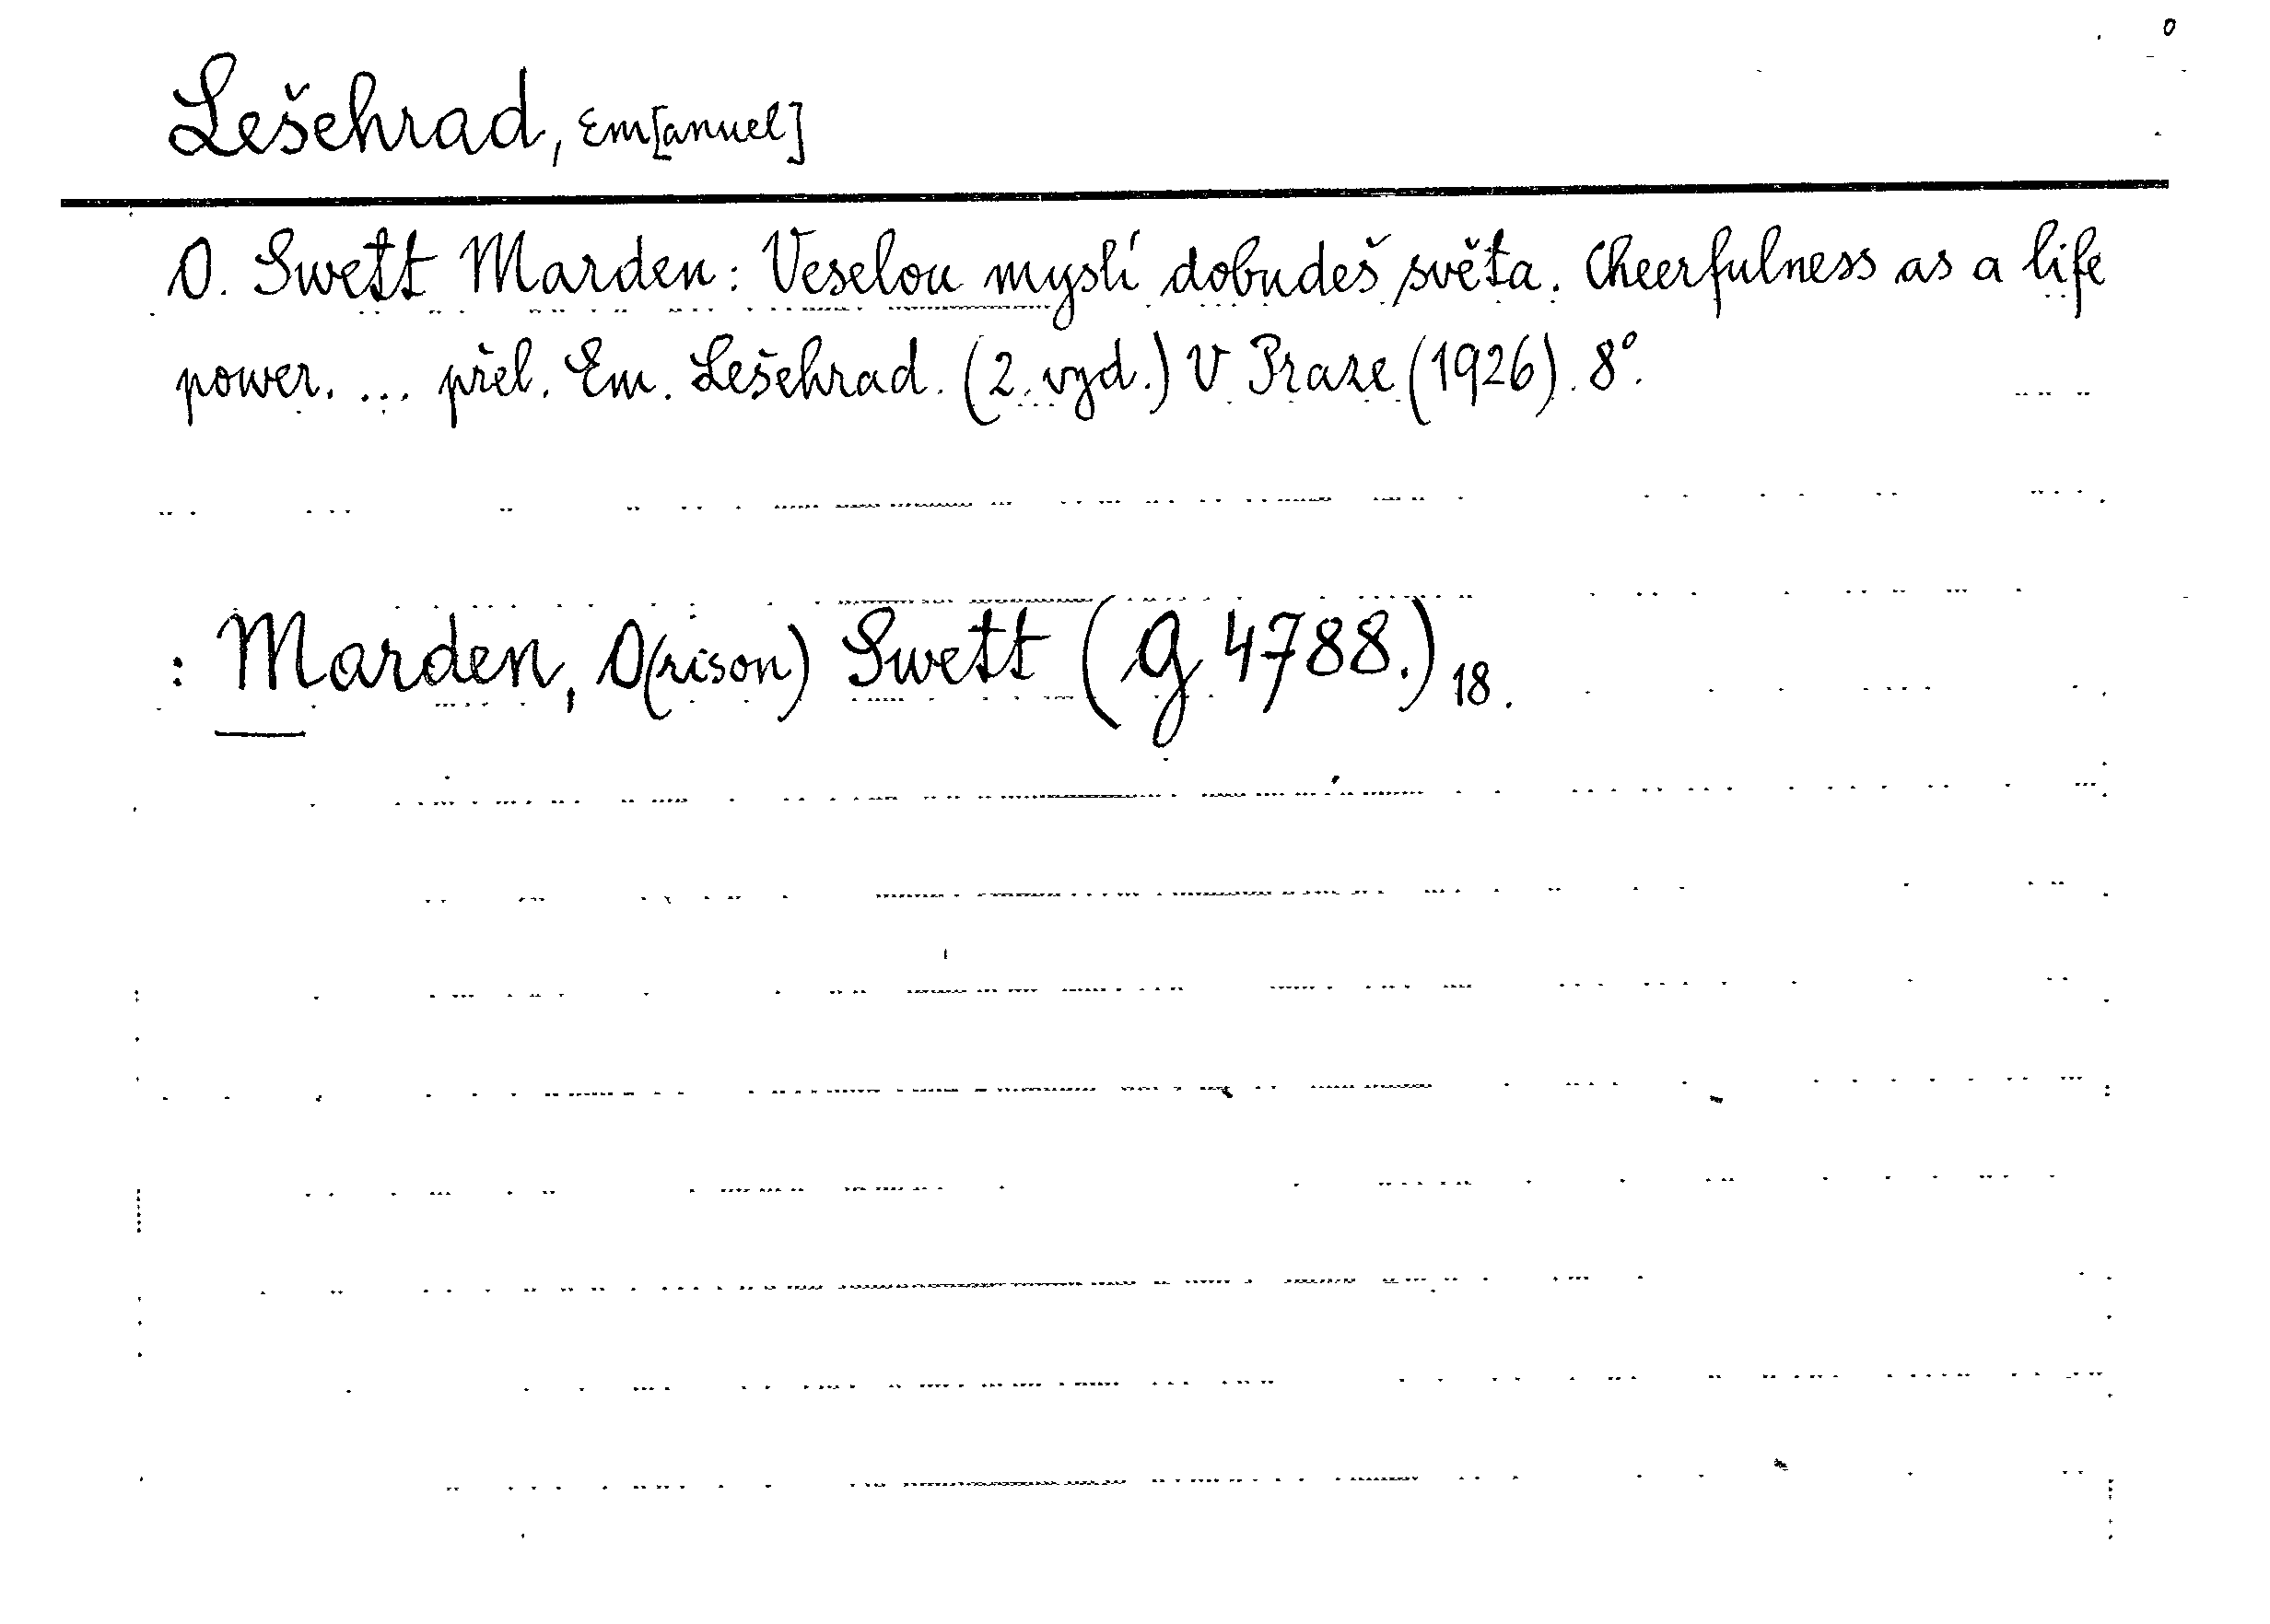 Lešehrad, Em[anuel]
O. Swett Marden: Veselou myslí dobudeš světa. Cheerfulness as a life
power. ... přel. Em. Lešehrad. (2. vyd.) V Praze (1926). 8°.
: Marden, O(rison) Swett (G 4788.) 18.